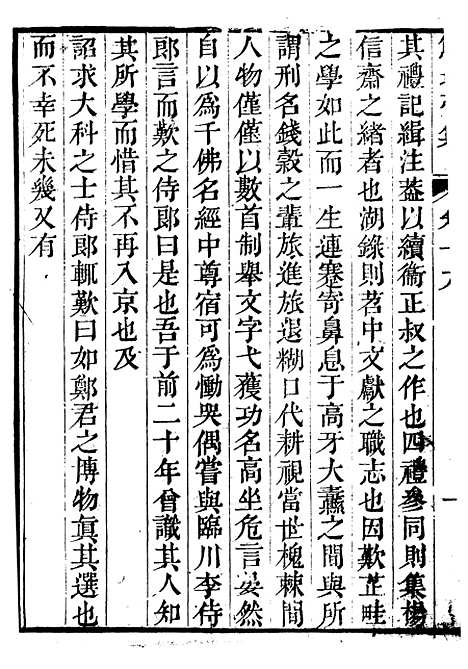 其禮記緝注葢以續衞正叔之作也四禮參同則集楊
信齋之緒者也湖錄則茗中文獻之職志也因歎芷畦
之學如此而一生連蹇寄鼻息于高牙大纛之間與所
謂刑名錢穀之輩旅進旅退糊口代耕視當世槐棘間
人物僅僅以數首制舉文字弋獲功名高坐危言妄然
自以為千佛名經中尊宿可為慟哭偶嘗與臨川李侍
郎言而歎之侍郎曰是也吾于前二十年曾識其人知
其所學而惜其不再入京也及
詔求大科之士侍郎輒歎曰如鄭君之博物眞其選也
而不幸死未幾又有